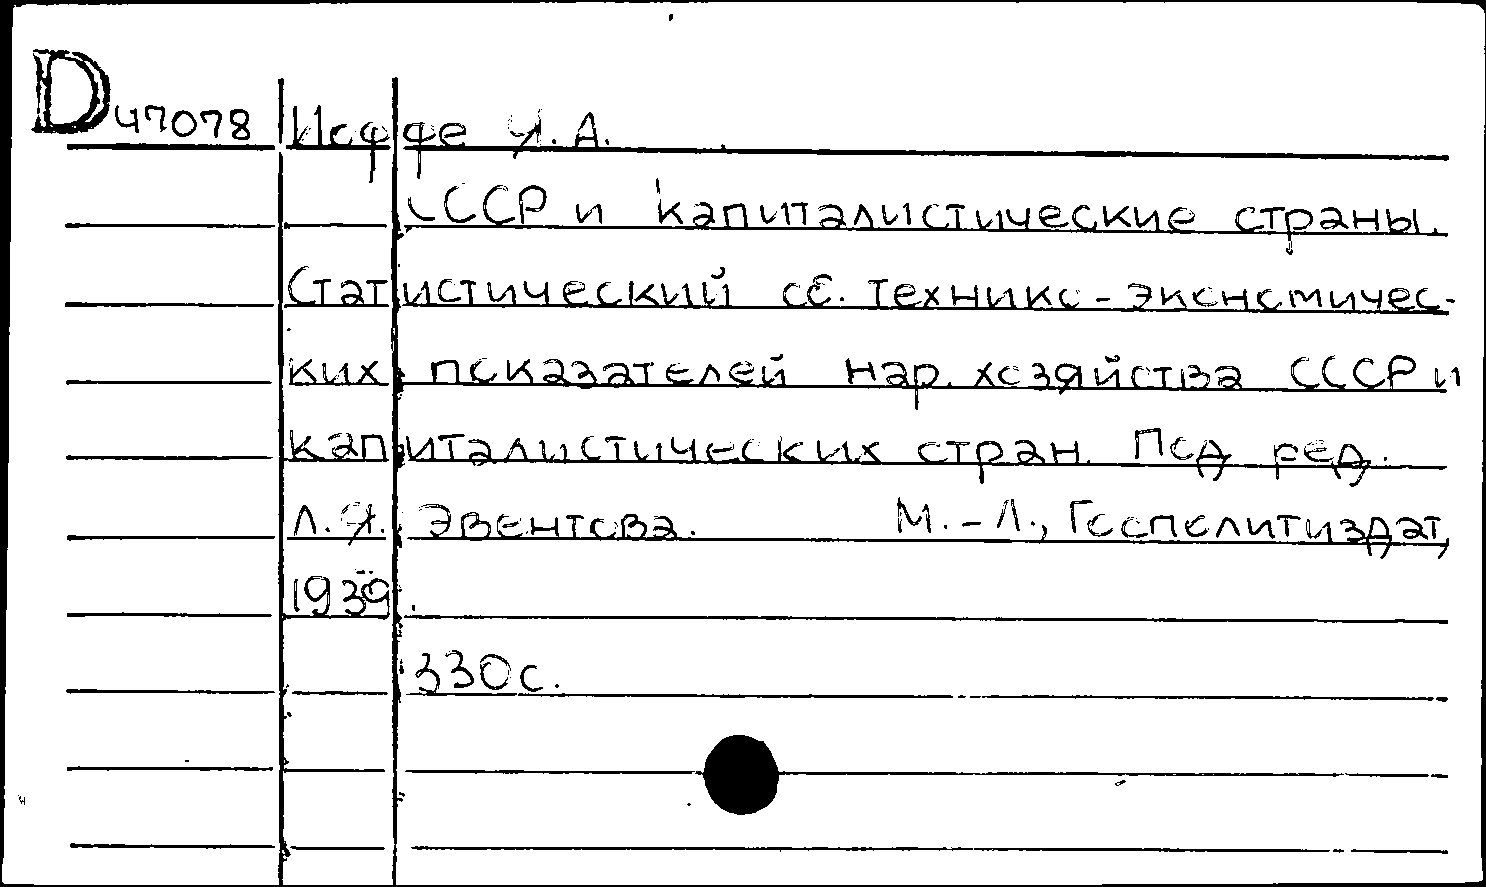 D 47078 Иоффе Я. А.
СССР и капиталистические страны.
Статистический сб. технико-экономичес-
ких показателей нар. хозяйства СССР и
капиталистических стран. Под ред.
Л. Я. Эвентова. М.-Л., Госполитиздат,
1939.
330 с.